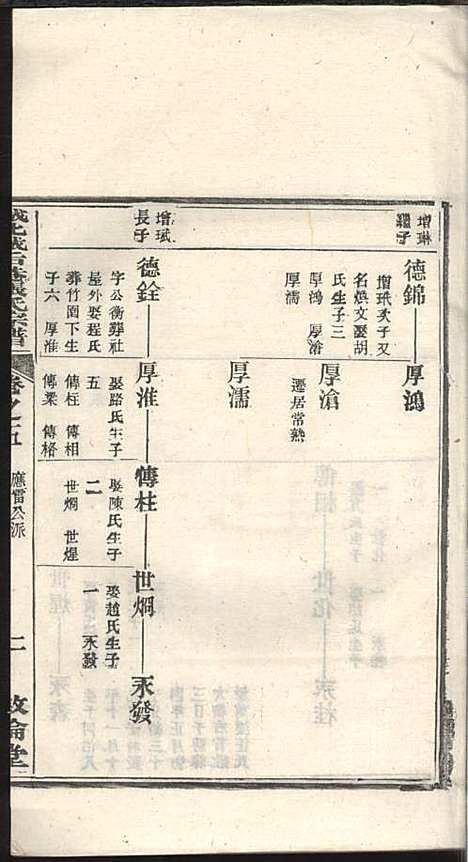 增琳
繼子
德錦
增珷次子又
名煥文娶胡
氏生子三
厚鴻 厚滄
厚濡
厚鴻
厚滄
遷居常熟
厚濡
增珷
長子
德銓
字公衡葬社
屋外娶程氏
葬竹園下生
子六 厚淮
厚淮
娶路氏生子
五
傳柱 傳相
傳樂 傳格
傳柱
娶陳氏生子
二
世烱 世煋
世烱
娶趙氏生子
一
永發
永發
氏宗譜
卷之五
應雷公派
二
敦倫堂